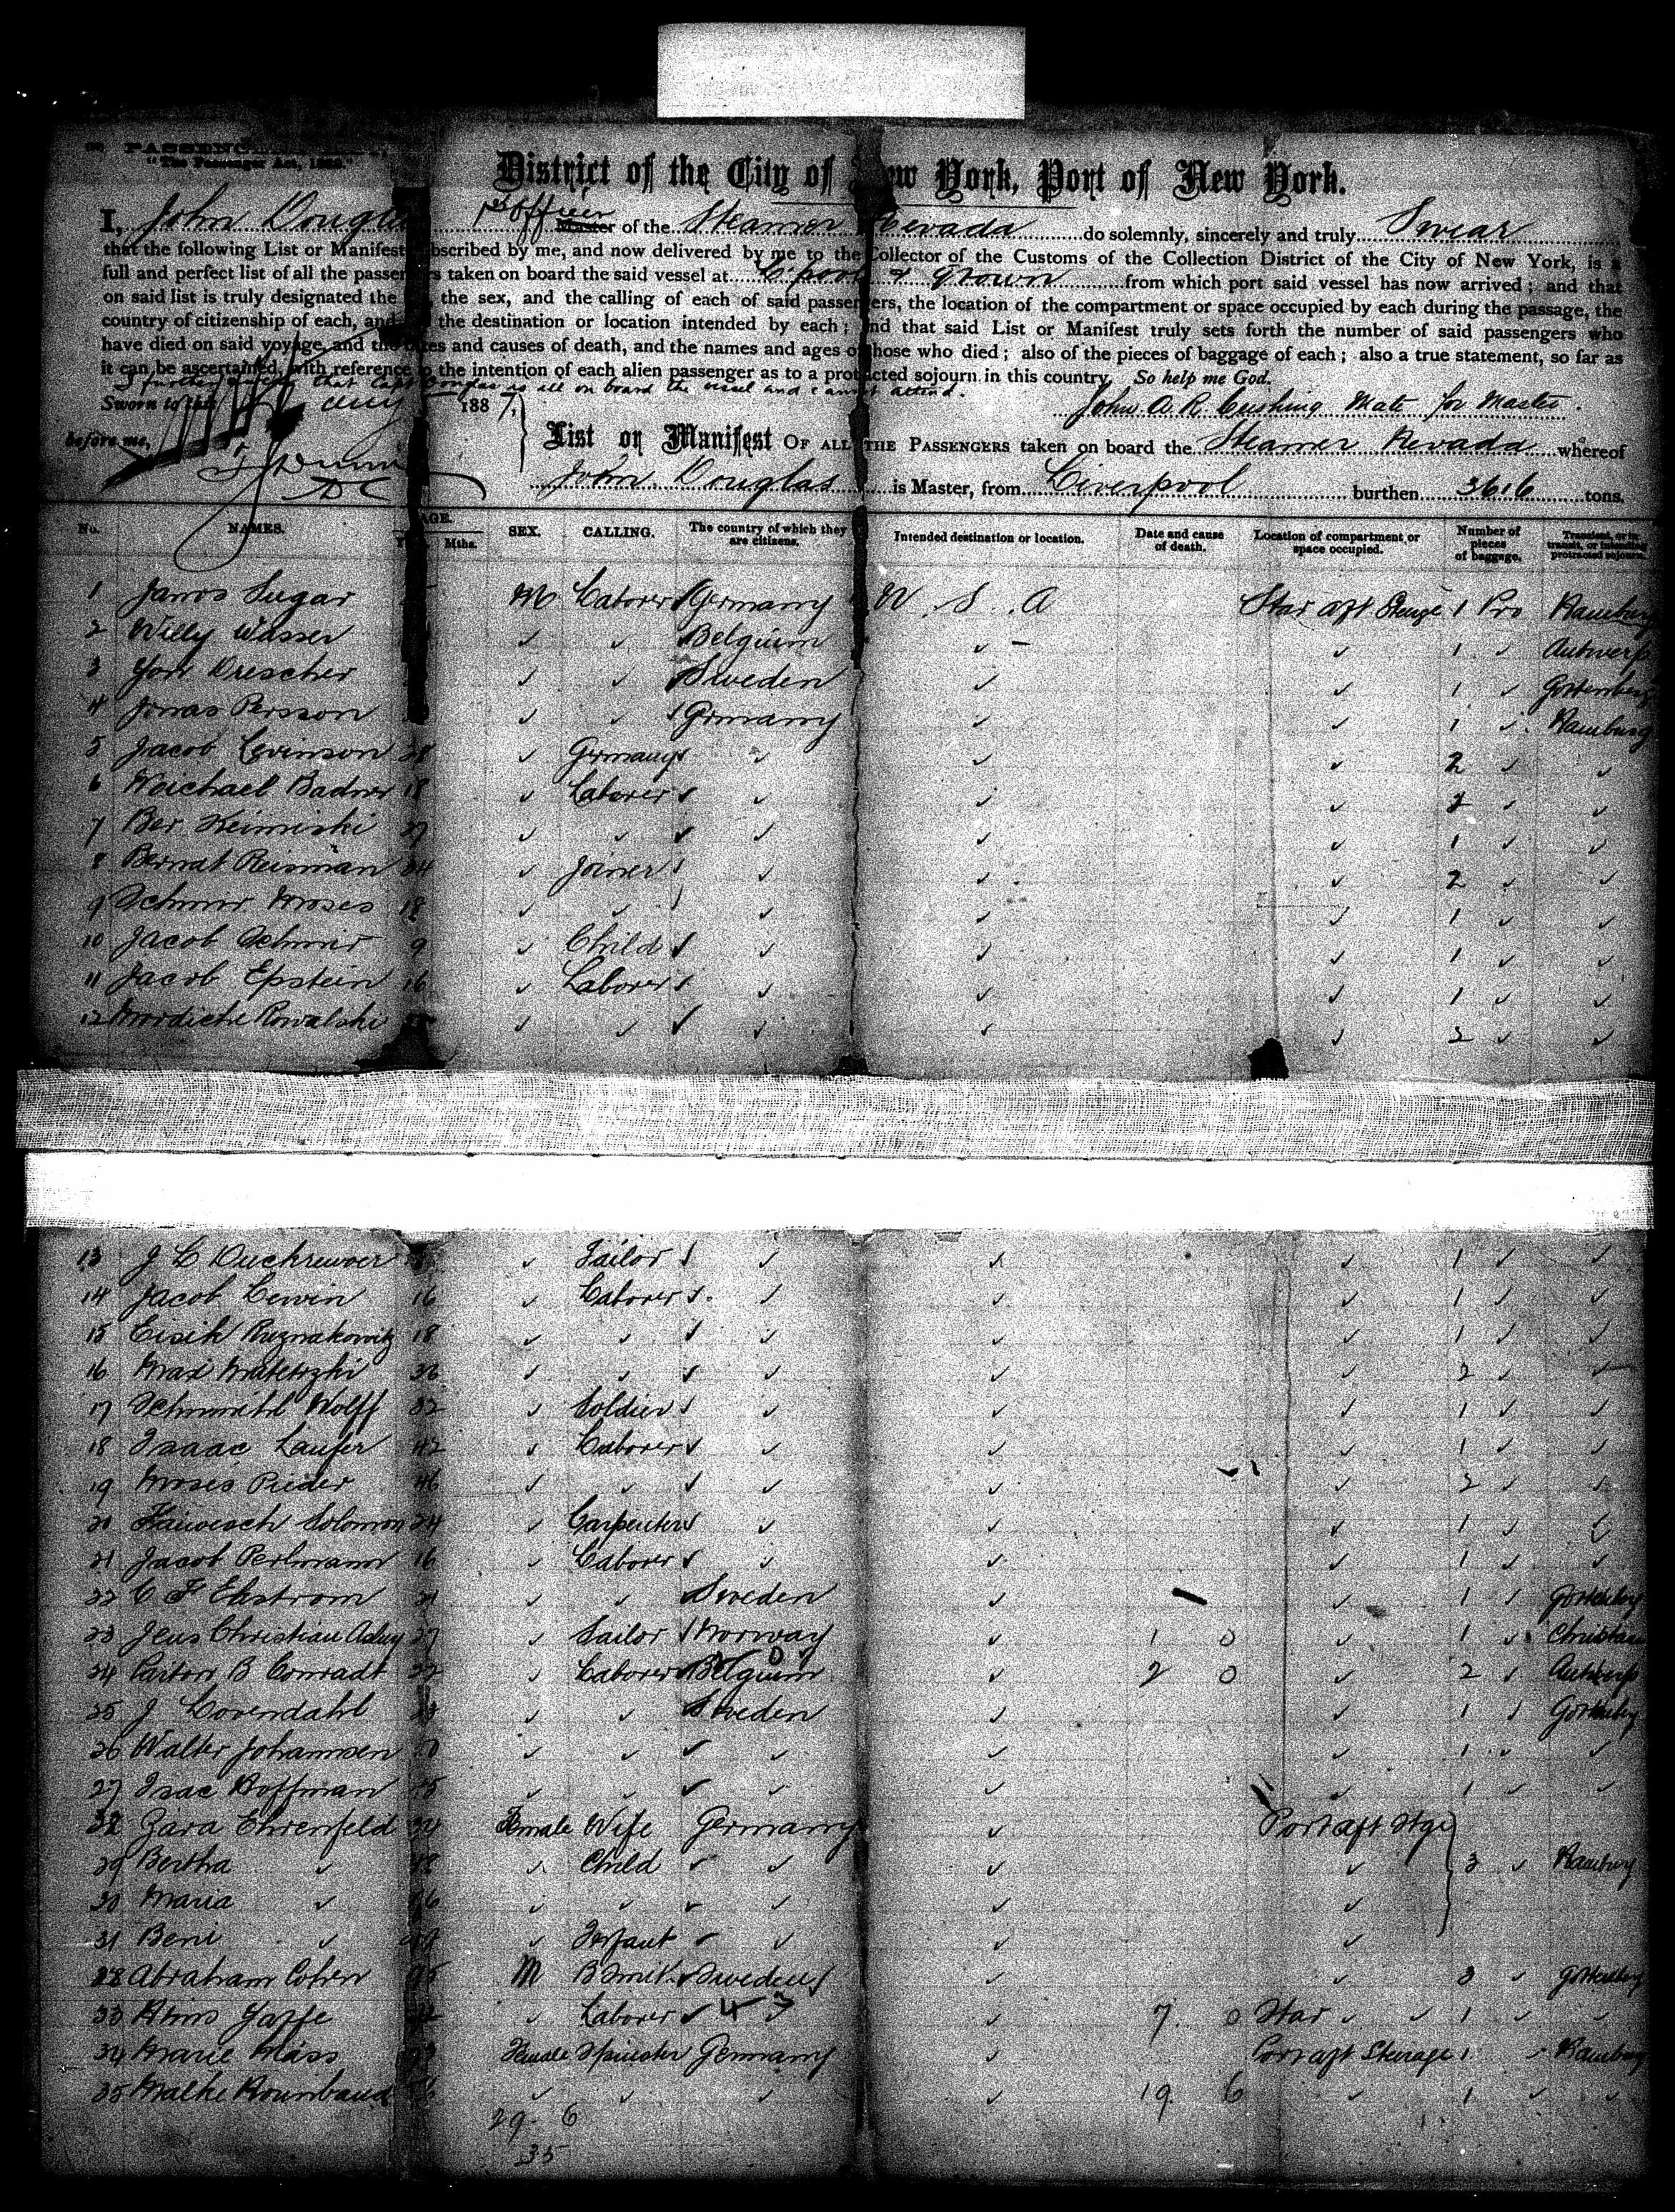 PASSENGER
"The Passenger Act, 1882."
District of the City of New York, Port of New York.
I, John Dougla 1st officer Master of the Steamer Nevada do solemnly, sincerely and truly Swear
that the following List or Manifest subscribed by me, and now delivered by me to the Collector of the Customs of the Collection District of the City of New York, is a
full and perfect list of all the passengers taken on board the said vessel at L'pool & Qtown from which port said vessel has now arrived; and that
on said list is truly designated the the sex, and the calling of each of said passengers, the location of the compartment or space occupied by each during the passage, the
country of citizenship of each, and the destination or location intended by each; and that said List or Manifest truly sets forth the number of said passengers who
have died on said voyage, and the dates and causes of death, and the names and ages of those who died; also of the pieces of baggage of each; also a true statement, so far as
it can be ascertained, with reference to the intention of each alien passenger as to a protracted sojourn in this country. So help me God.
I further that Capt Douglas is ill on board the vessel and cannot attend.
Sworn to this Aug 1887,
John A. R. Cushing Mate for Master.
before me,
List or Manifest OF ALL THE PASSENGERS taken on board the Steamer Nevada whereof
John Douglas is Master, from Liverpool burthen 3616 tons.
No. NAMES. AGE. Mths. SEX. CALLING. The country of which they are citizens. Intended destination or location. Date and cause of death. Location of compartment or space occupied. Number of pieces of baggage. Transient, or in transit, or intending protracted sojourn.
1 Janos Sugar M Laborer Germany U.S.A Star aft Steage 1 Pro Hamburg
2 Willy Wasser ✓ ✓ Belgium ✓ ✓ 1 ✓ Antwerp
3 Yon Drescher ✓ ✓ Sweden ✓ ✓ 1 ✓ Gottenberg
4 Jonas Persson ✓ ✓ Germany ✓ ✓ 1 ✓ Hamburg
5 Jacob Levinson 28 ✓ Germany ✓ ✓ ✓ 2 ✓ ✓
6 Weichael Badner 18 ✓ Laborer ✓ ✓ ✓ 2 ✓ ✓
7 Ber Keimiski 27 ✓ ✓ ✓ ✓ ✓ 1 ✓ ✓
8 Bernat Reisman 24 ✓ Joiner ✓ ✓ ✓ 2 ✓ ✓
9 Schmir Moses 18 ✓ ✓ ✓ ✓ ✓ 1 ✓ ✓
10 Jacob Schmir 9 ✓ Child ✓ ✓ ✓ 1 ✓ ✓
11 Jacob Epstein 16 ✓ Laborer ✓ ✓ ✓ 1 ✓ ✓
12 Mordiche Kowalski ✓ ✓ ✓ ✓ ✓ 2 ✓ ✓
13 J L Duckrewoer ✓ Tailor ✓ ✓ ✓ 1 ✓ ✓
14 Jacob Lewin 16 ✓ Laborer ✓ ✓ ✓ 1 ✓ ✓
15 Eisik Ruznakowitz 18 ✓ ✓ ✓ ✓ ✓ 1 ✓ ✓
16 Max Matetzki 36 ✓ ✓ ✓ ✓ ✓ 2 ✓ ✓
17 Schmuihl Wolff 32 ✓ Soldier ✓ ✓ ✓ 1 ✓ ✓
18 Isaac Laufer 42 ✓ Laborer ✓ ✓ ✓ 1 ✓ ✓
19 Moses Rieder 46 ✓ ✓ ✓ ✓ ✓ 2 ✓ ✓
20 Haiwesch Solomon 24 ✓ Carpenter ✓ ✓ ✓ 1 ✓ ✓
21 Jacob Perlmann 16 ✓ Laborer ✓ ✓ ✓ 1 ✓ ✓
22 C F Ekstrom 21 ✓ ✓ Sweden ✓ ✓ 1 ✓ Gottenberg
23 Jens Christian 27 ✓ Sailor Norway ✓ 1 0 ✓ 1 ✓ Christiana
24 Carton B Conradt 22 ✓ Laborer Belgium ✓ 2 0 ✓ 2 ✓ Antwerp
25 J Lovendahl ✓ ✓ Sweden ✓ ✓ 1 ✓ Gottenberg
26 Walter Johannsen ✓ ✓ ✓ ✓ ✓ 1 ✓ ✓
27 Isac Hoffman ✓ ✓ ✓ ✓ ✓ 1 ✓ ✓
32 Zara Ehrenfeld 34 Female Wife Germany ✓ Port aft Stge
29 Bertha ✓ ✓ Child ✓ ✓ ✓ ✓ 3 ✓ Hamburg
30 Maria ✓ ✓ ✓ ✓ ✓ ✓ ✓
31 Beni ✓ ✓ Infant ✓ ✓ ✓ ✓
28 Abraham Cohen M B Smit Sweden ✓ ✓ 3 ✓ Gottenberg
33 Abins Yaffe ✓ Laborer ✓ 4 3 ✓ 7. 0 Star ✓ ✓ 1 ✓ ✓
34 Marie Mass Female Spinster Germany ✓ Port aft Steerage 1 ✓ Hamburg
35 Malke Rosenbaud ✓ ✓ ✓ ✓ 19. 6 ✓ 1 ✓ ✓
29 - 6
35